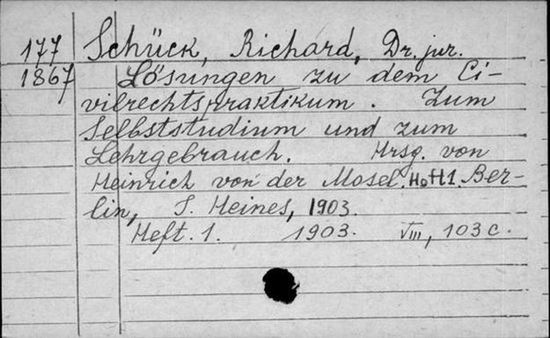 177 Schück, Richard, Dr. jur.
1867 Lösungen zu dem Ci-
vilrechtspraktikum. Zum
Selbststudium und zum
Lehrgebrauch. Hrsg. von
Heinrich von der Mosel. Heft 1. Ber-
lin, S. Heines, 1903.
Heft. 1. 1903. VIII, 103 c.